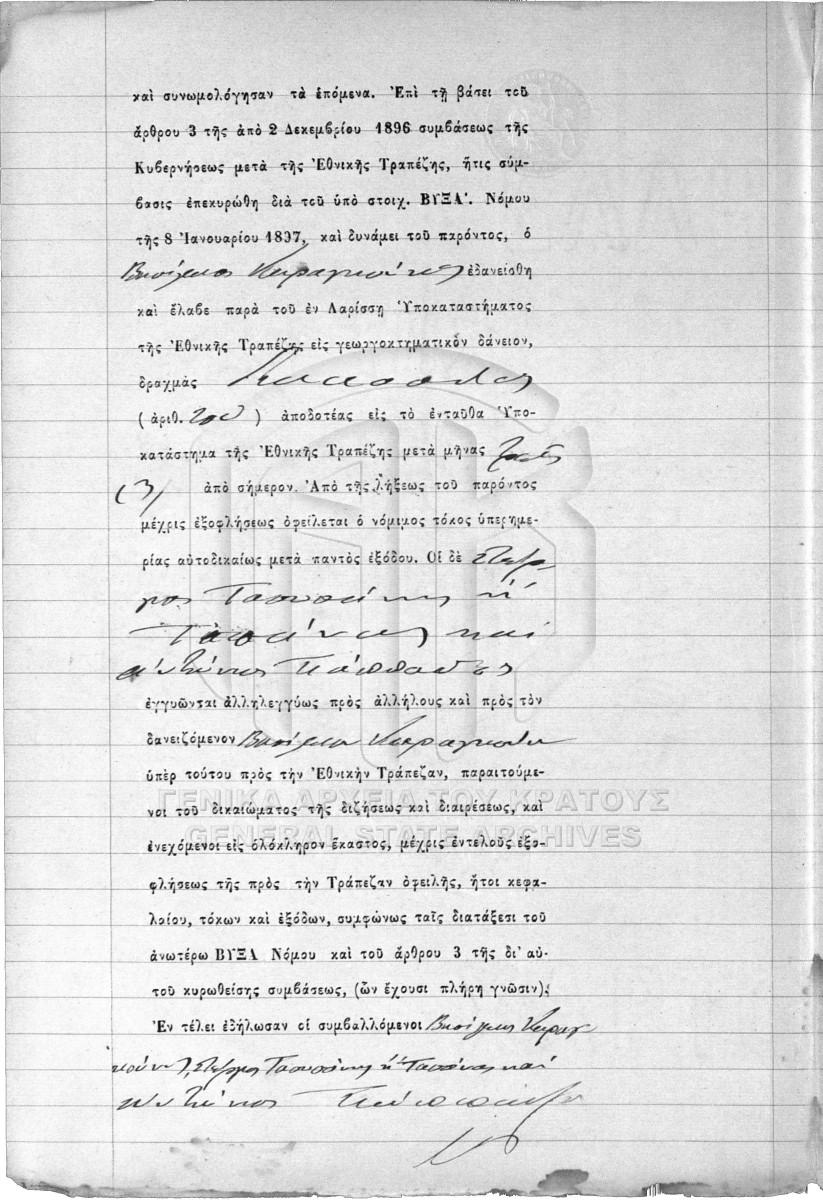 καὶ συνωμολόγησαν τὰ ἑπόμενα. Ἐπὶ τῇ βάσει τοῦ
ἄρθρου 3 τῆς ἀπὸ 2 Δεκεμβρίου 1896 συμβάσεως τῆς
Κυβερνήσεως μετὰ τῆς Ἐθνικῆς Τραπέζης, ἥτις σύμ-
βασις ἐπεκυρώθη διὰ τοῦ ὑπὸ στοιχ. ΒΥΞΑ'. Νόμου
τῆς 8 Ἰανουαρίου 1897, καὶ δυνάμει τοῦ παρόντος, ὁ
Βασίλειος Καραγκούνης ἐδανείσθη
καὶ ἔλαβε παρὰ τοῦ ἐν Λαρίσσῃ Ὑποκαταστήματος
τῆς Ἐθνικῆς Τραπέζης εἰς γεωργοκτηματικὸν δάνειον,
δραχμὰς
(ἀριθ. ) ἀποδοτέας εἰς τὸ ἐνταῦθα Ὑπο-
κατάστημα τῆς Ἐθνικῆς Τραπέζης μετὰ μῆνας τρεῖς
(3) ἀπὸ σήμερον. Ἀπὸ τῆς λήξεως τοῦ παρόντος
μέχρις ἐξοφλήσεως ὀφείλεται ὁ νόμιμος τόκος ὑπερημε-
ρίας αὐτοδικαίως μετὰ παντὸς ἐξόδου. Οἱ δὲ Στέρ-
γιος ἢ
καὶ
Ἀντώνιος
ἐγγυῶνται ἀλληλεγγύως πρὸς ἀλλήλους καὶ πρὸς τὸν
δανειζόμενον Βασίλειον Καραγκούνην
ὑπὲρ τούτου πρὸς τὴν Ἐθνικὴν Τράπεζαν, παραιτούμε-
νοι τοῦ δικαιώματος τῆς διζήσεως καὶ διαιρέσεως, καὶ
ΓΕΝΙΚΑ ΑΡΧΕΙΑ ΤΟΥ ΚΡΑΤΟΥΣ
GENERAL STATE ARCHIVES
ἐνεχόμενοι εἰς ὁλόκληρον ἕκαστος, μέχρις ἐντελοῦς ἐξο-
φλήσεως τῆς πρὸς τὴν Τράπεζαν ὀφειλῆς, ἤτοι κεφα-
λαίου, τόκων καὶ ἐξόδων, συμφώνως ταῖς διατάξεσι τοῦ
ἀνωτέρω ΒΥΞΑ Νόμου καὶ τοῦ ἄρθρου 3 τῆς δι' αὐ-
τοῦ κυρωθείσης συμβάσεως, (ὧν ἔχουσι πλήρη γνῶσιν).
Ἐν τέλει ἐδήλωσαν οἱ συμβαλλόμενοι Βασίλειος Καραγ
κούνης, Στέργιος ἢ καὶ
Ἀντώνιος